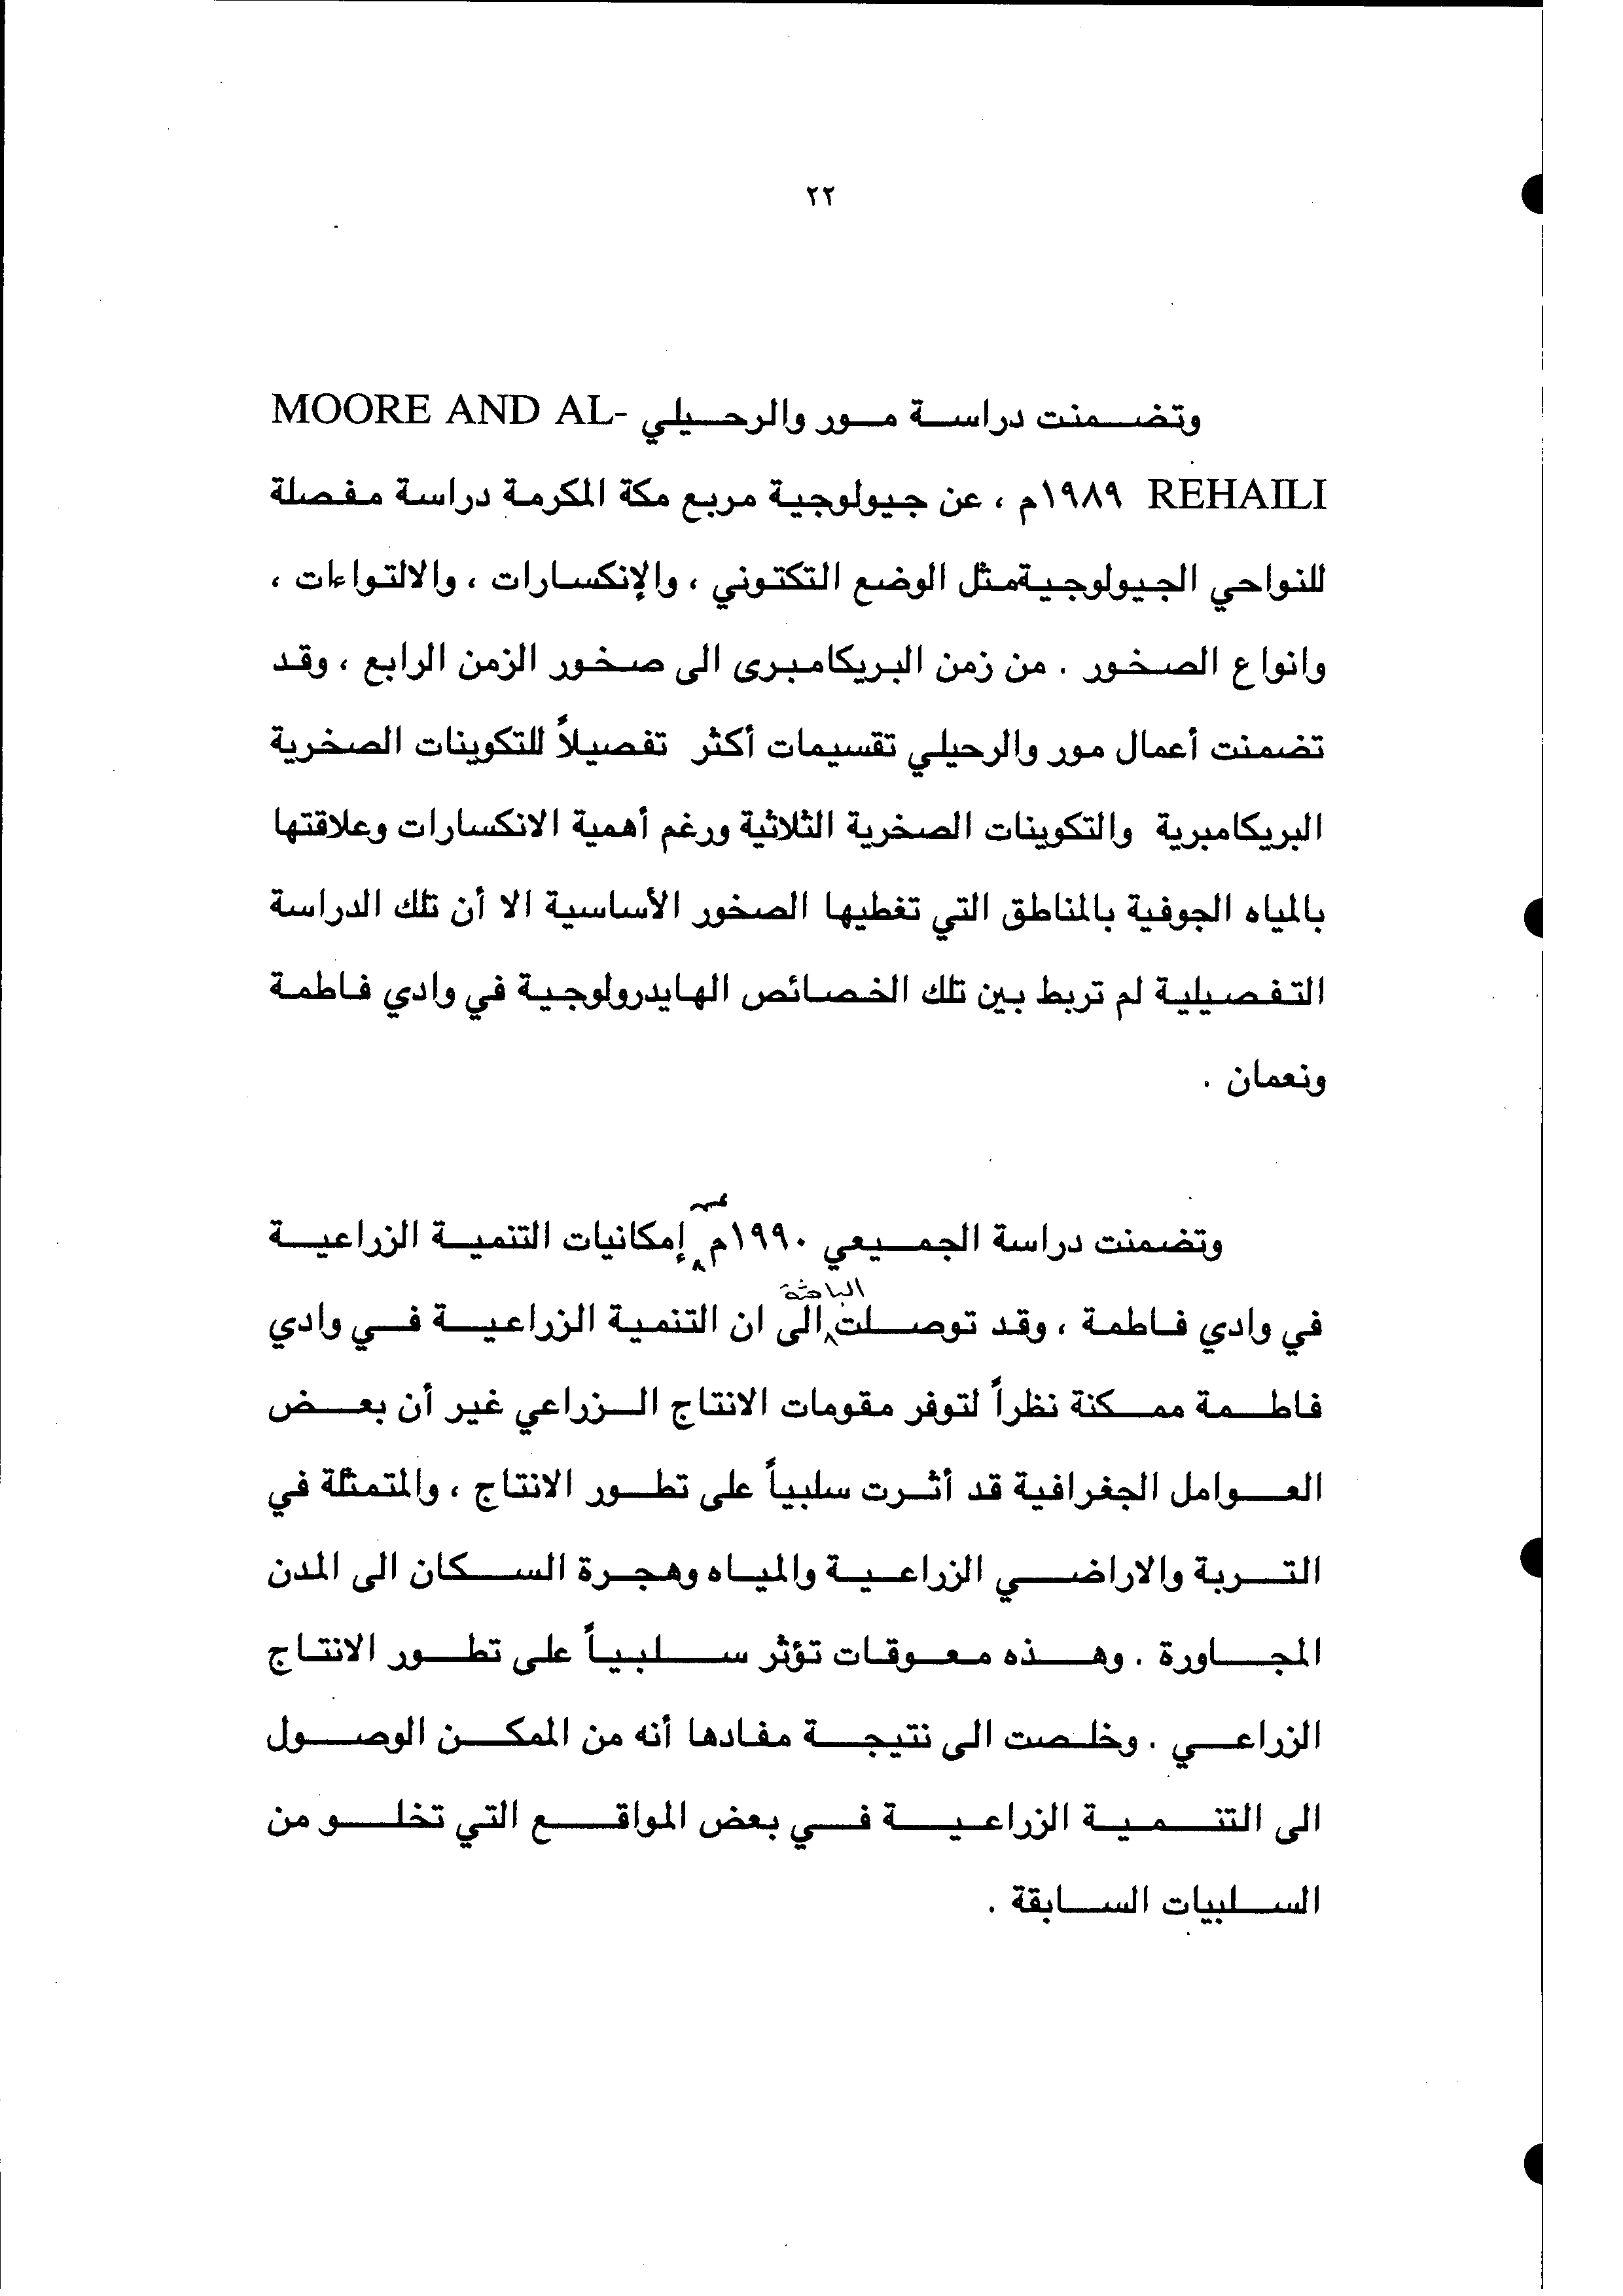 ٢٢
وتضمنت دراسة مور والرحيلي MOORE AND AL-
REHAILI ١٩٨٩م ، عن جيولوجية مربع مكة المكرمة دراسة مفصلة
للنواحي الجيولوجيةمثل الوضع التكتوني ، والإنكسارات ، والالتواءات ،
وانواع الصخور . من زمن البريكامبرى الى صخور الزمن الرابع ، وقد
تضمنت أعمال مور والرحيلي تقسيمات أكثر تفصيلاً للتكوينات الصخرية
البريكامبرية والتكوينات الصخرية الثلاثية ورغم أهمية الانكسارات وعلاقتها
بالمياه الجوفية بالمناطق التي تغطيها الصخور الأساسية الا أن تلك الدراسة
التفصيلية لم تربط بين تلك الخصائص الهايدرولوجية في وادي فاطمة
ونعمان .
وتضمنت دراسة الجميعي ١٩٩٠م عن إمكانيات التنمية الزراعية
في وادي فاطمة ، وقد توصلت الباحثة الى ان التنمية الزراعية في وادي
فاطمة ممكنة نظراً لتوفر مقومات الانتاج الزراعي غير أن بعض
العوامل الجغرافية قد أثرت سلبياً على تطور الانتاج ، والمتمثلة في
التربة والاراضي الزراعية والمياه وهجرة السكان الى المدن
المجاورة . وهذه معوقات تؤثر سلبياً على تطور الانتاج
الزراعي . وخلصت الى نتيجة مفادها أنه من الممكن الوصول
الى التنمية الزراعية في بعض المواقع التي تخلو من
السلبيات السابقة .